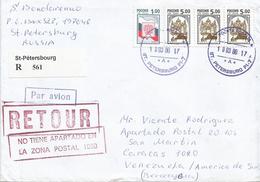 P.O.Box
St-Petersburg
RUSSIA
РОССИЯ 1.00
РОССИЯ 5.00
РОССИЯ 5.00
РОССИЯ 5.00
St-Pétersbourg
R 561
Par avion
RETOUR
NO TIENE APARTADO EN
LA ZONA POSTAL 1080
Mr. Vicente Rodriguez
Apartado Postal 20.105
San Martin
Caracas
Venezuela / America de Sur